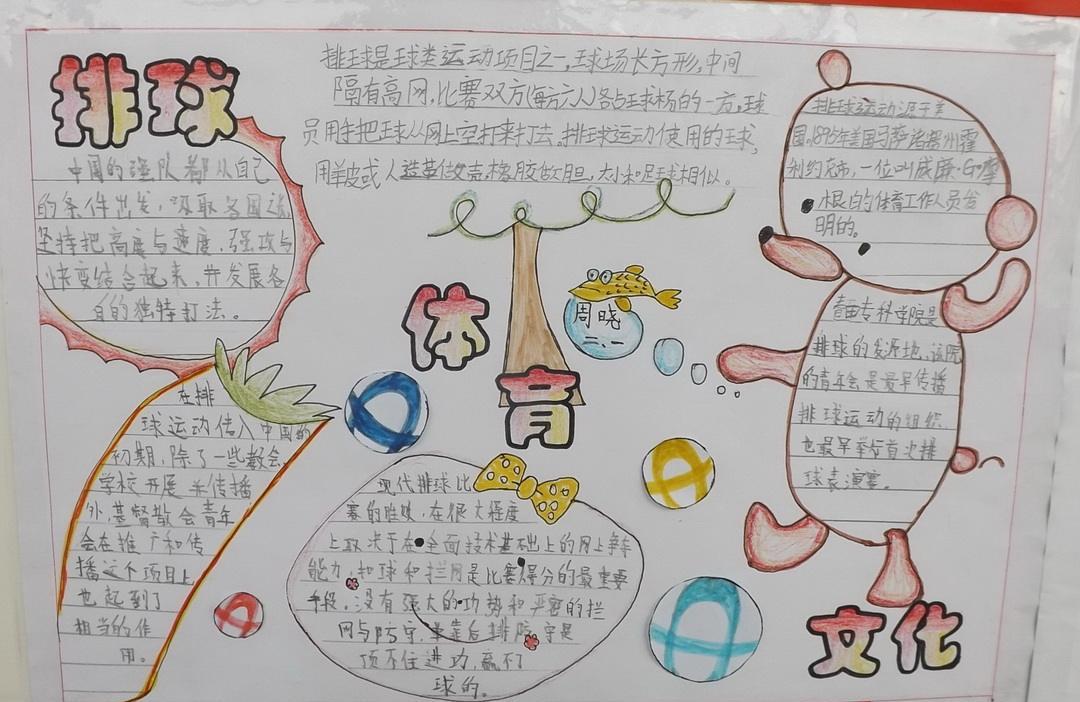 排球
排球是球类运动项目之一,球场长方形,中间
隔有高网,比赛双方(每方六人)各占球场的一方,球
员用手把球从网上空打来打去。排球运动使用的球,
用羊皮或人造革做壳,橡胶做胆,大小和足球相似。
中国的强队都从自己
的条件出发,吸取各国
坚持把高度与速度,强攻与
快变结合起来,并发展各
自的独特打法。
体
育
周晓
二、一
排球运动源于美
国,1895年美国马萨诸塞州霍
利约克市,一位叫威廉·G·摩
根的体育工作人员发
明的。
青年会专科学院是
排球的发源地,该院
的青年会是最早传播
排球运动的组织
也最早举行首次排
球表演赛。
在排
球运动传入中国的
初期,除了一些教会
学校开展并传播
外,基督教会青年
会在推广和传
播这个项目上
也起到了
相当的作
用。
现代排球比
赛的胜败,在很大程度
上取决于在全面技术基础上的网上争夺
能力,扣球和拦网是比赛得分的最重要
手段,没有强大的功势和严密的拦
网与防守,单靠后排防守是
顶不住进功,赢不了
球的。
文化